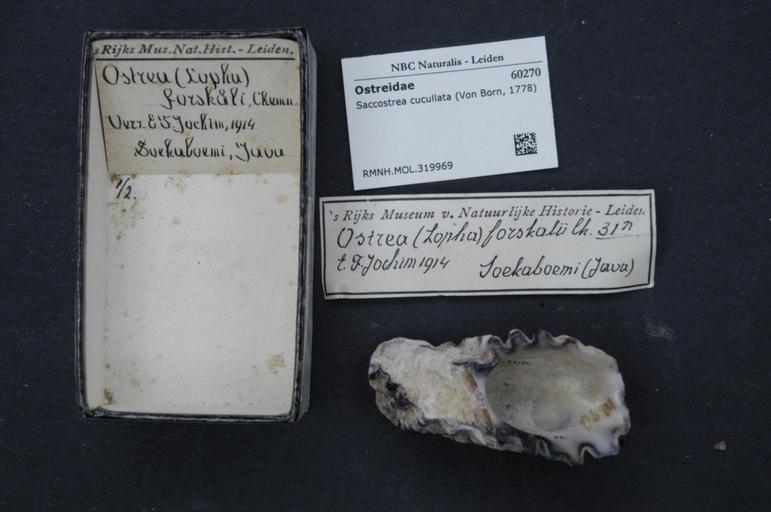 's Rijks Mus. Nat. Hist. - Leiden.
Ostrea (Lopha)
forskåli, Chemn.
Verz. E. F. Jochim, 1914
Soekaboemi, Java
1/2.
NBC Naturalis - Leiden
60270
Ostreidae
Saccostrea cucullata (Von Born, 1778)
RMNH.MOL.319969
's Rijks Museum v. Natuurlijke Historie - Leiden.
Ostrea (Lopha) forskalii Ch. 31n
E. F. Jochim 1914 Soekaboemi (Java)